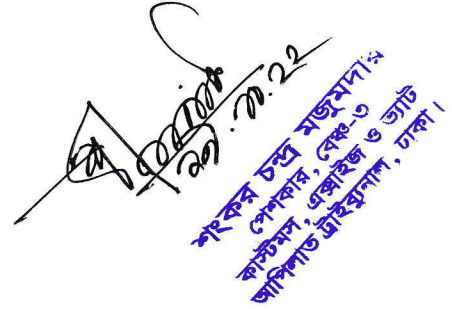 ২৩.১১.২২
শংকর চন্দ্র মজুমদার
পেশকার, বেঞ্চ-৩
কাস্টমস, এক্সাইজ ও ভ্যাট
আপিলাত ট্রাইব্যুনাল, ঢাকা।